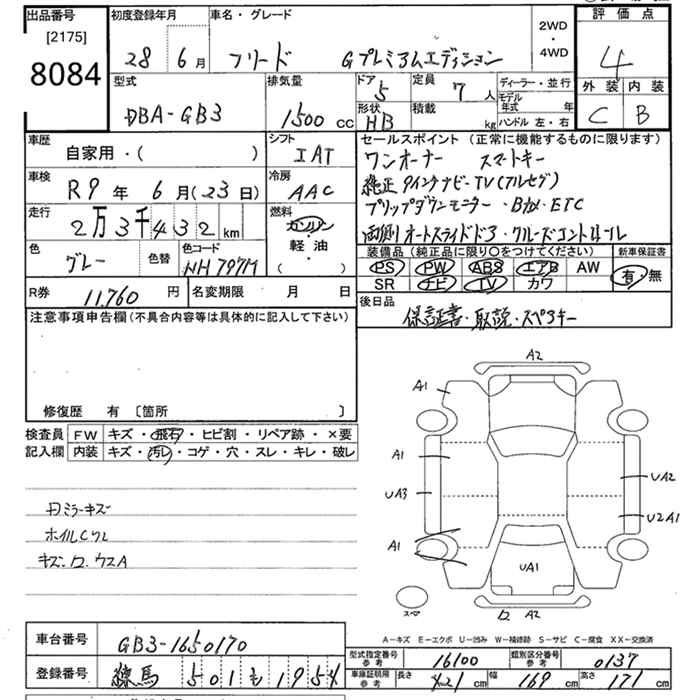 出品番号 初度登録年月 車名・グレード 2WD ・ 4WD 評価点
[2175] 8084 28 6月 フリード Gプレミアムエディション 4
型式 排気量 ドア 定員 ディーラー・並行 外装 内装
DBA-GB3 1500 cc 5 7人 モデル年式 年 C B
形状 積載 ハンドル 左・右
HB kg
車歴 シフト セールスポイント(正常に機能するものに限ります)
自家用・( ) IAT ワンオーナー スマートキー
車検 冷房 純正9インチナビ・TV(フルセグ)
R9年 6月(23日) AAC フリップダウンモニター・Bカメ・ETC
走行 燃料 両側オートスライドドア・クルーズコントロール
2万3千432km ガソリン 軽油 ( )
色 色替 色コード 装備品(純正品に限り○をつけてください) 新車保証書
グレー NH797M PS PW ABS エアB AW 有・無
SR ナビ TV カワ
R券 11,760円 名変期限 月 日 後日品
保証書・取説・スペアキー
注意事項申告欄(不具合内容等は具体的に記入して下さい)
修復歴 有 〔箇所 〕
検査員 FW キズ・飛石・ヒビ割・リペア跡・×要
記入欄 内装 キズ・汚レ・コゲ・穴・スレ・キレ・破レ
A2
A1
A1
UA3
A1
UA2
U2A1
UA1
A2
ミラーキズ
ホイルCツレ
スペア
A-キズ E-エクボ U-凹み W-補修跡 S-サビ C-腐食 XX-交換済
車台番号 GB3-1650170
型式指定番号 参考 16100 類別区分番号 参考 0137
登録番号 練馬 501も1954
車庫証明用 参考 長さ 421cm 幅 169cm 高さ 171cm